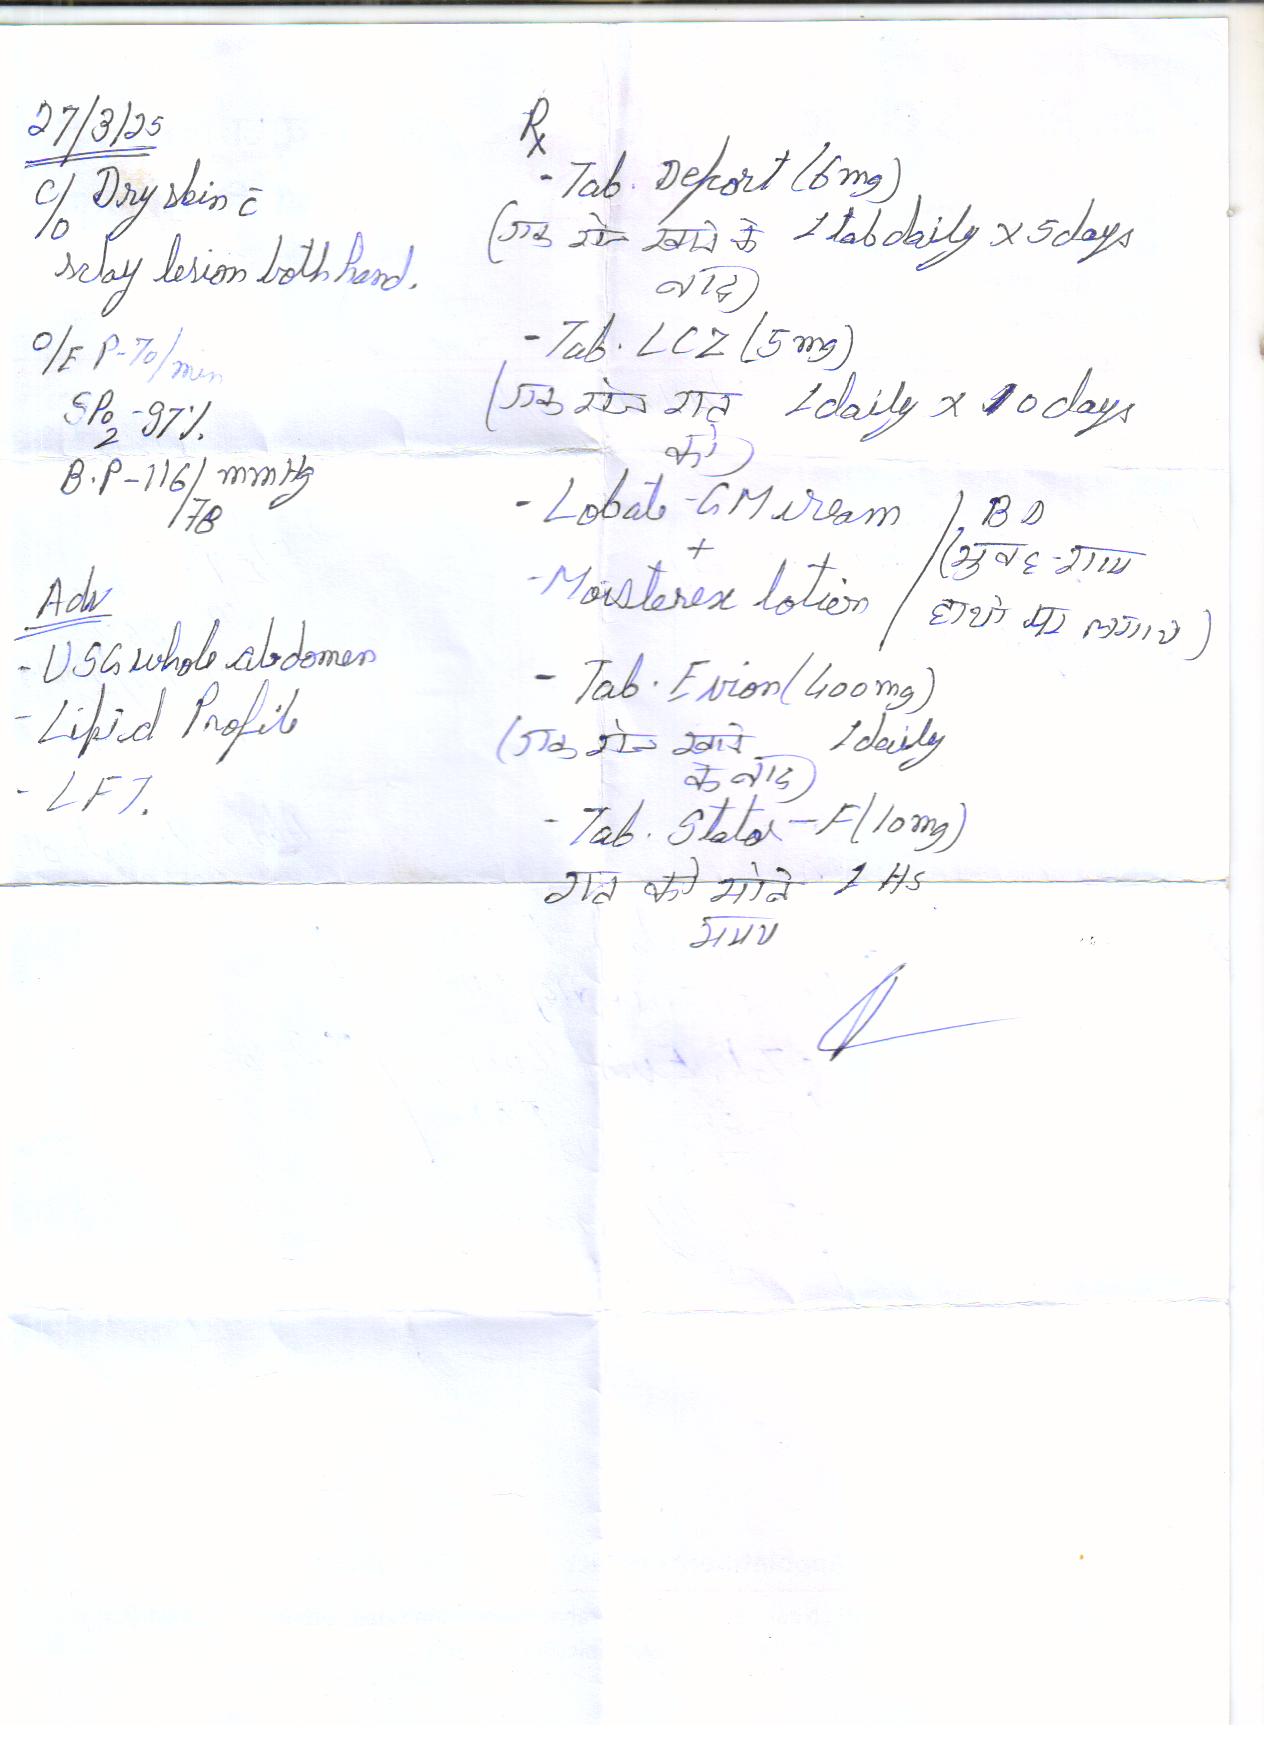 27/3/25
C/O Dry skin c̄
sclay lesion both hand.
O/E P-70/min
SPO2 -97%
B.P-116/78 mmHg
Adv
- USG whole abdomen
- Lipid Profile
- LFT.
Rx
- Tab. Defcort (6mg)
(एक रोज खाने के 1 tab daily x 5 days
बाद)
- Tab. LCZ (5 mg)
(एक रोज रात 1 daily x 10 days
को)
- Lobate-GM cream / BD
+ (सुबह-शाम
- Moisterex lotion / हाथों पर लगाये)
- Tab. Evion (400mg)
(एक रोज खाने 1 daily
के बाद)
- Tab. Stator-F (10mg)
रात को सोते 1 HS
समय